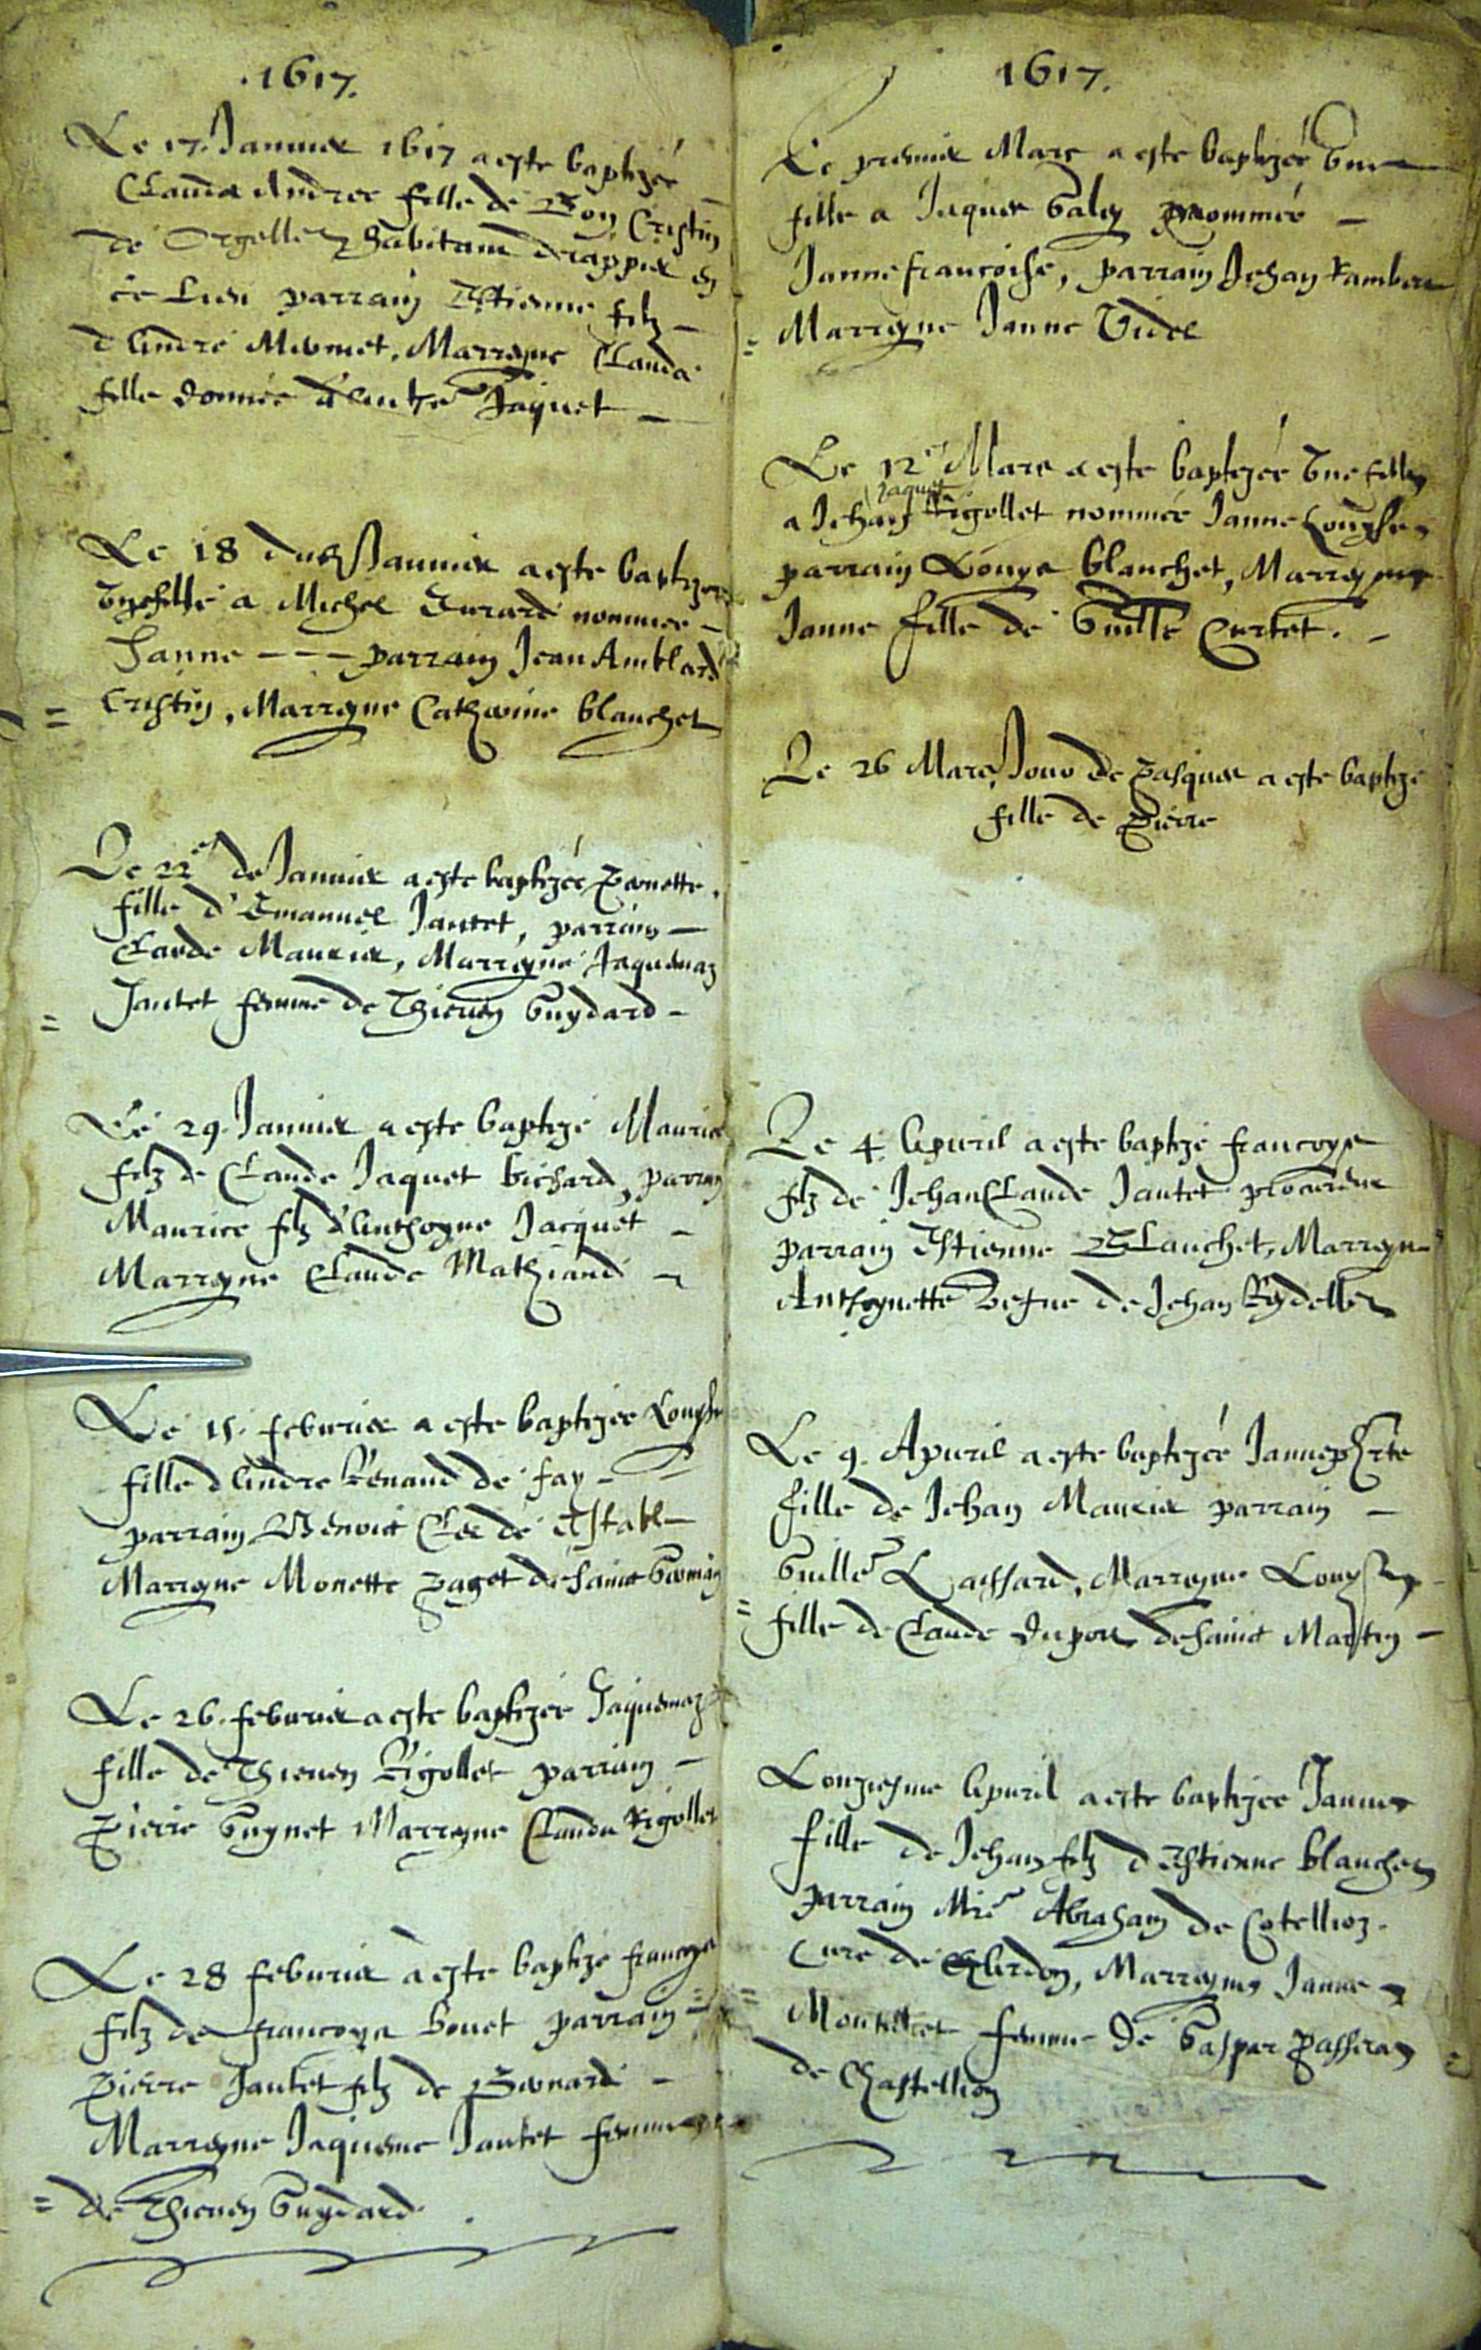 1617.
Le 17. Januier 1617 a este baptizée
Clauda Andree fille de Cristin
de Orgellet habitant en
ce Lieu parrain Estienne filz
d'Andre Marreyne Clauda
fille donnée Jaquet
Le 18 dud Januier a este baptizee
Vne fille a Michel Girard nommee
Janne parrain Jean Amblard
Cristin, Marreyne Catherine blanchet
Le 22e de Januier a este baptizée Pernette
fille d'Emanuel Jantet, parrain
Claude Maurier, Marreyne Jaquemaz
Jantet femme de Thieuen Guydard
Le 29. Januier a este baptizé Maurice
filz de Claude Jaquet bichard, parrain
Maurice filz d'Anthoyne Jacquet
Marreyne Claude Mathiand
Le 15. feburier a este baptizee Louyse
fille d'Andre Renaud de fay
parrain Benoict de
Marreyne Monette Paget de sainct Germain
Le 26. feburier a este baptizée Jaquemaz
fille de Thieuen Rigollet parrain
Pierre Guynet Marreyne Clauda Rigollet
Le 28 feburier a este baptizé francoys
filz de francoys bonet parrain
Pierre Jantet filz de Bernard
Marreyne Jaqueme Jantet femme
de Thieuen Guydard.
1617.
Le premier Mars a este baptizée Vne
fille a Jaques Galey nommée
Janne francoise, parrain Jehan Rambert
Marreyne Janne Videl
Le 12e Mars a este baptizée Vne fille
Jaquet
a Jehan Rigollet nommée Janne Louyse
parrain Louys blanchet, Marreyne
Janne fille de Guille Curtet.
Le 26 Mars Jour de Pasques a este baptizé
fille de Pierre
Le 4. Apuril a este baptizé francoys
filz de Jehan Claude Jantet procureur
parrain Estienne Blanchet, Marreyne
Anthoynette vefue de Jehan Rydellet
Le 9. Apuril a este baptizée Janne
fille de Jehan Maurier parrain
Guille Lassard, Marreyne Louyse
fille de Claude dupont de sainct Martin
Lonziesme Apuril a este baptizee Janne
fille de Jehan filz d'Estienne blanchet
parrain Mre Abraham de Cotellioz
Cure de Marreyne Janne
femme de Gaspar Passerat
de Chastellion